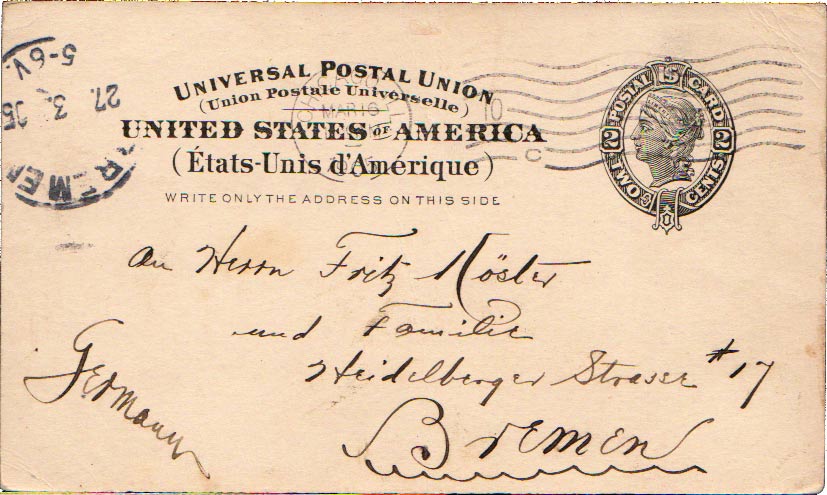 UNIVERSAL POSTAL UNION
(Union Postale Universelle)
UNITED STATES OF AMERICA
(États-Unis d'Amérique)
WRITE ONLY THE ADDRESS ON THIS SIDE
CHICAGO
MAR 16
10
C
POSTAL 15 CARD
2 2
TWO CENTS
BREMEN
27. 3. 05
5-6V.
An Herrn Fritz Köster
und Familie
Heidelberger Strasse #17
Bremen
Germany